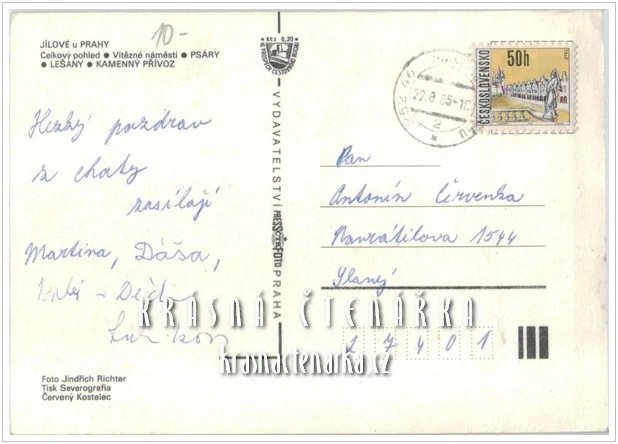 10-
JÍLOVÉ u PRAHY
Celkový pohled • Vítězné náměstí • PSÁRY
• LEŠANY • KAMENNÝ PŘÍVOZ
Kčs 0,20
VE PROSPĚCH CESTOVNÍHO RUCHU
Hezký pozdrav
z chaty
zasílají
Martina, Dáša,
Děda
VYDAVATELSTVÍ PRESSFOTO PRAHA
252 46
22.8.85-16
2
50h
ČESKOSLOVENSKO
Pan
Antonín Červenka
Navrátilova 1544
Slaný
27401
KRÁSNÁ ČTENÁŘKA
krasnactenarka.cz
Foto Jindřich Richter
Tisk Severografia
Červený Kostelec